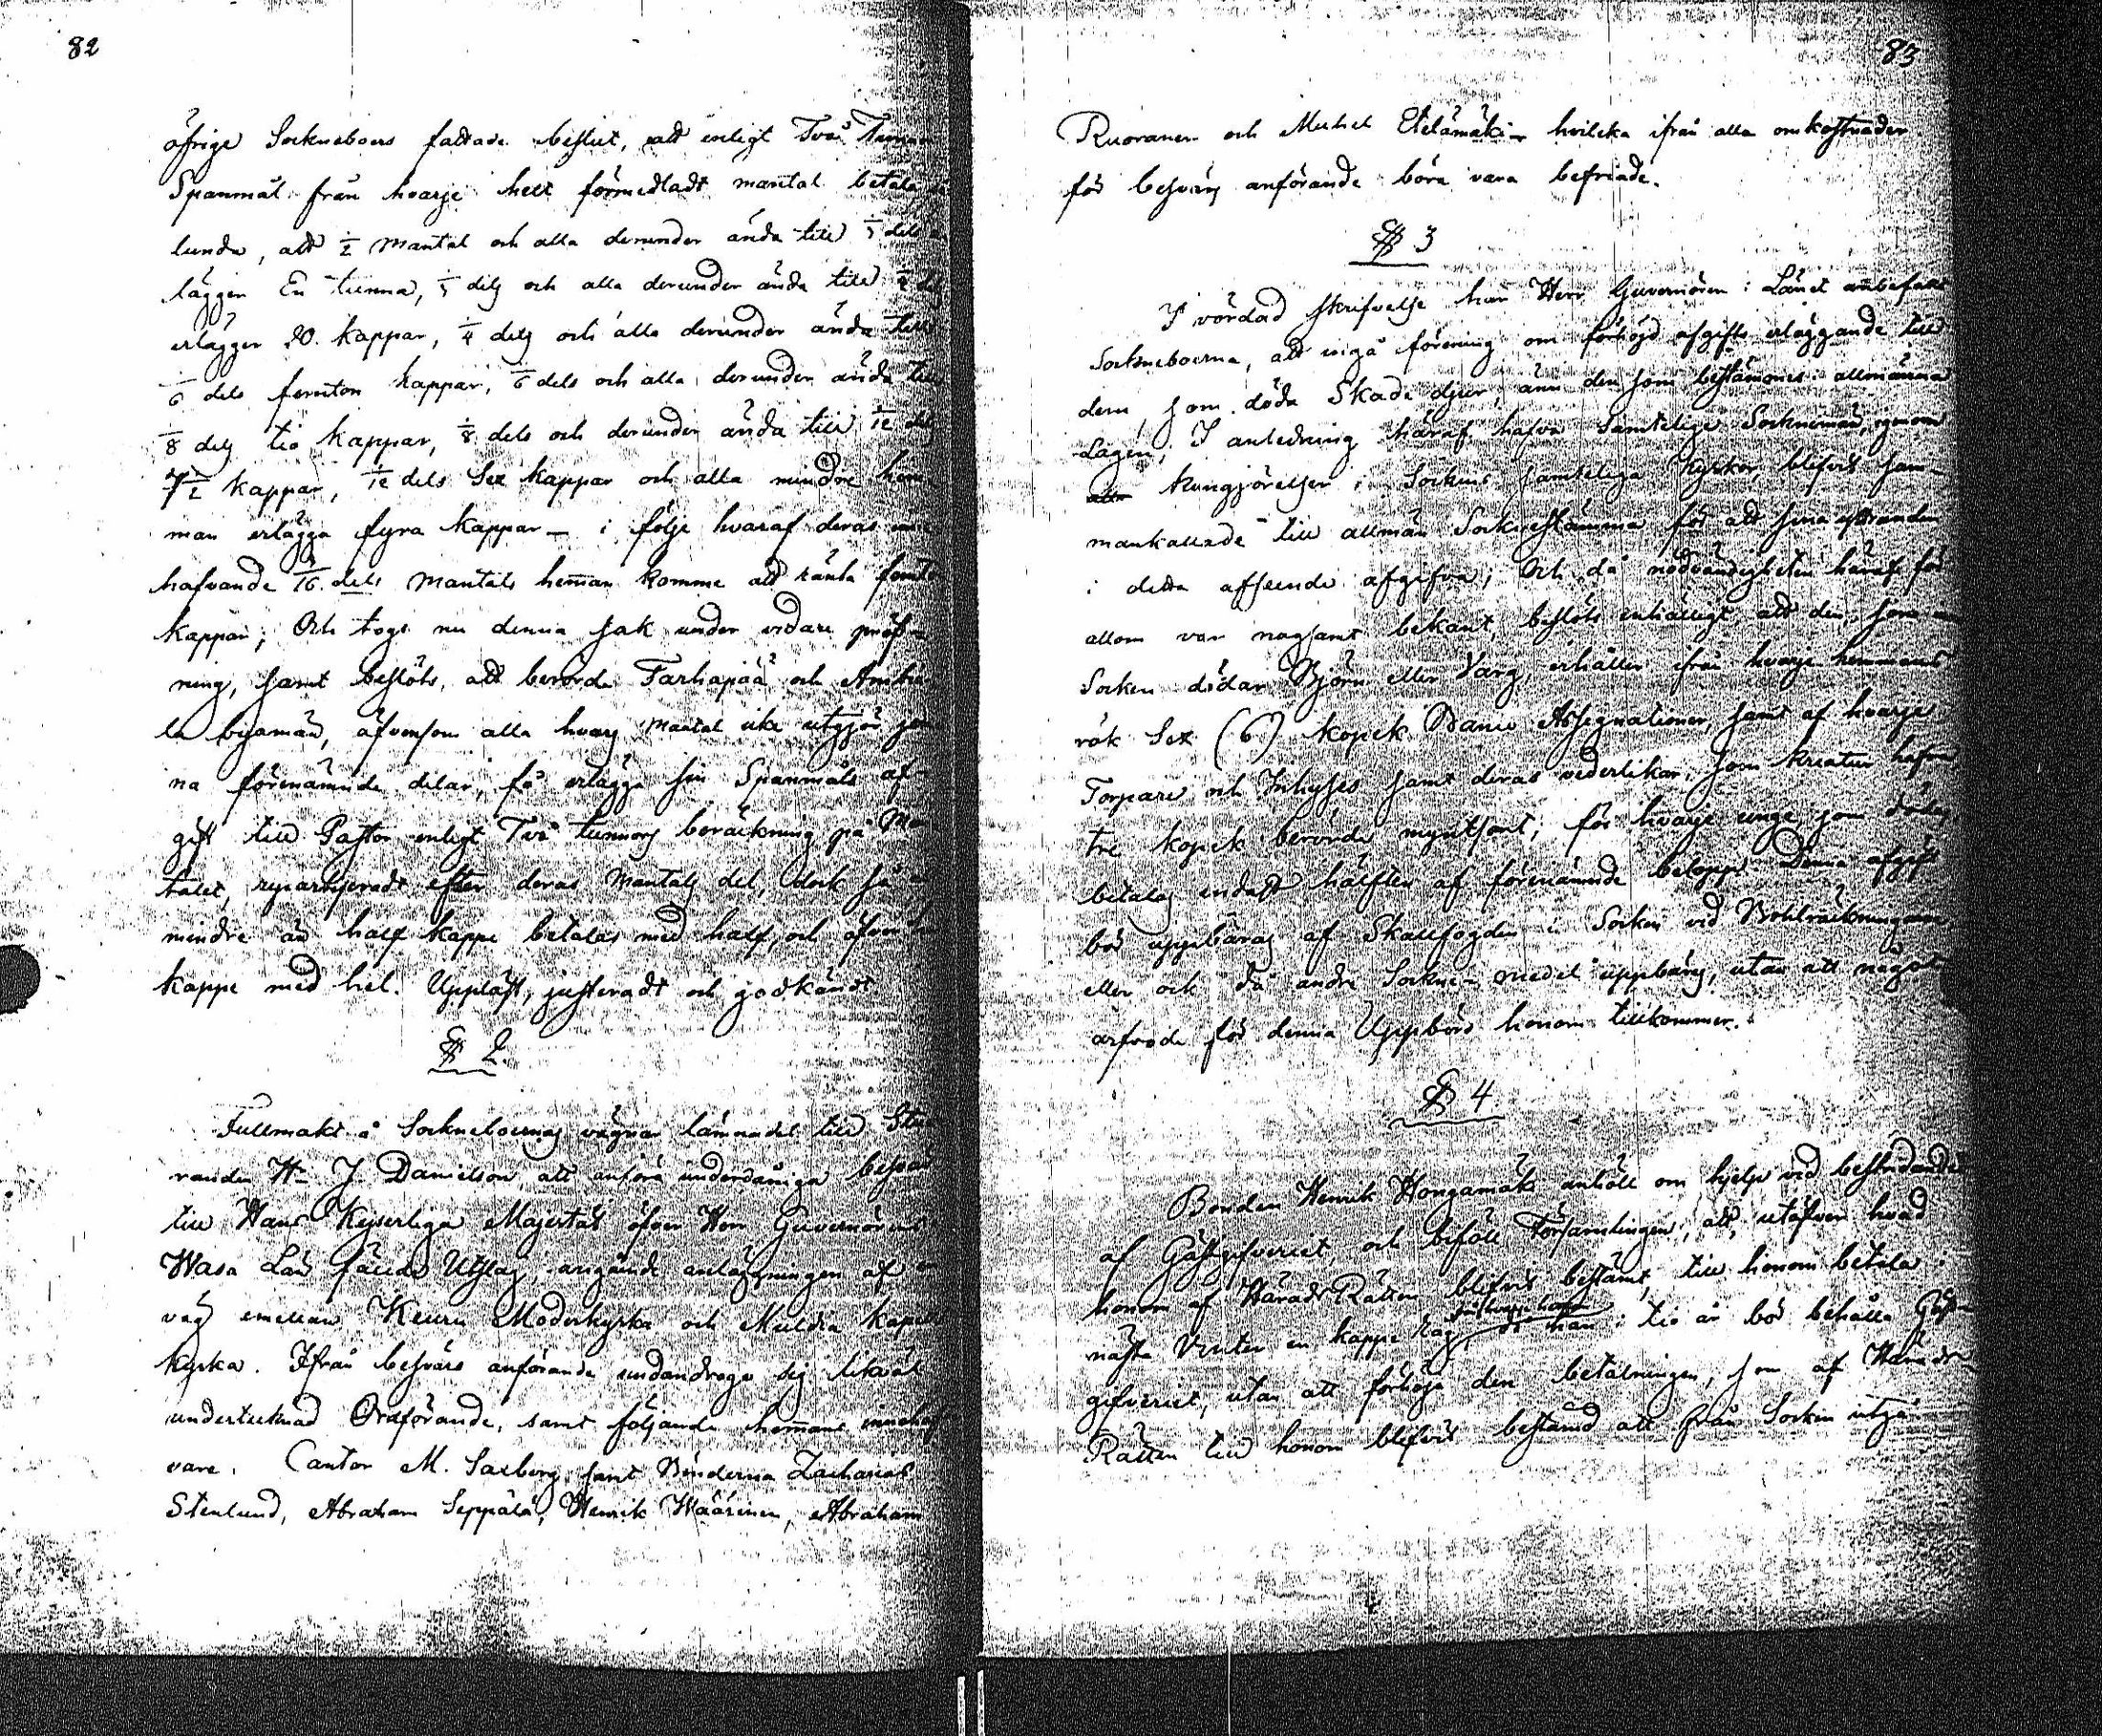 82
öfrige Sockneboers fattade beslut, att enligt Två Tunnor
Spanmål från hvarje helt förmedladt mantal betala
lunda, att 1/2 mantal och alla derunder ända till 1/3 dels
lägger En tunna, 1/3 dels och alla derunder ända till 1/4 dels
erlägger 20. kappar, 1/4 dels och alla derunder ända till
1/6 dels femton kappar, 1/6 dels och alla derunder ända till
1/8 dels tio kappar, 1/8 dels och derunder ända till 1/12 del
7 1/2 kappar, 1/12 dels Sex kappar och alla mindre hem-
man erlägga fyra kappar – i följe hvaraf deras
hafvande 1/16 dels mantals hemman komme att ränta
kappar; Och togs nu denna sak under vidare pröf-
ning, samt beslöts, att berörde Tarhapää och
la byamän, äfvensom alla hvars mantal icke utgjör
na förenämnde delar, få erlägga sin Spanmåls af-
gift till Pastor enligt Två tunnors beräkning på Man-
talet, reparticeradt efter deras Mantals del, dock så,
mindre än half kappe betalas med half, och öfver
kappe med hel. Uppläst, justeradt och godkändt
§ 2.
Fullmakt å Sockneboernas vägnar lämnades till Stu-
randen H. J. Danielson, att anföra underdåniga besvär
till Hans Kejserliga Majestät öfver Herr Guvernörens
Wasa Län fälde Utslag, angående anläggningen af en
väg emellan Keuru Moderkyrka och Muldia kapell
kyrka. Ifrån besvärs anförande undandrogo sig likväl
undertecknad Ordförande, samt följande hemmans innehaf
vare. Cantor M. Saxberg, samt Bönderna Zacharias
Stenlund, Abraham Seppälä, Henrik Wäärinen, Abraham
83
Ruoranen och Michel Etelämäki – hvilcka ifrån alla omkostnader
för besvärs anförande böra vara befriade.
§ 3
I vördad skrifvelse har Herr Guvernören i Länet anbefalt
Sockneboerna, att ingå förening om förhöjd afgifts erläggande till
dem, som döda Skade djur, änn den som bestämmes i allmänna
Lagen; I anledning häraf hafva Samtelige Sockenemän, igenom
kungjörelser i Sockens samteliga Kyrkor, blifvit sam-
mankallade till allmän Socknestämma för att sina yttranden
i detta afseende afgifva; Och då nödvändigheten häraf för
allom var nogsamt bekant, beslöts enhälligt att den, som
Socken dödar Björn eller Varg, erhåller ifrån hvarje hemmans
rök Sex (6) kopek Banco Assignationer, samt af hvarje
Torpare och Inhyses samt deras vederlikar, som kreatur hafva
tre kopek berörde myntsort; för hvarje unge, som dödas,
betalas endast hälften af förenämnde belopp. Denna afgift
bör uppbäras af Skallfogden i Socken vid Bohlräkningarne
eller ock då andre Sockne-medel uppbärs, utan att något
arfvode för denna Uppbörd honom tillkommer.
§ 4
Bonden Henrik Hongamäki anhöll om hjelp vid bestridandet
af Gästgifveriet, och biföll Församlingen, att, utöfver hvad
honom af Härads Rätten blifvit bestämt, till honom betala
nästa Vinter en kappe Råg, då han i tio år bör behålla Gäst-
gifveriet, utan att förhöja den betalningen, som af Härads
Rätten till honom blifvit bestämd att från Socken utgå